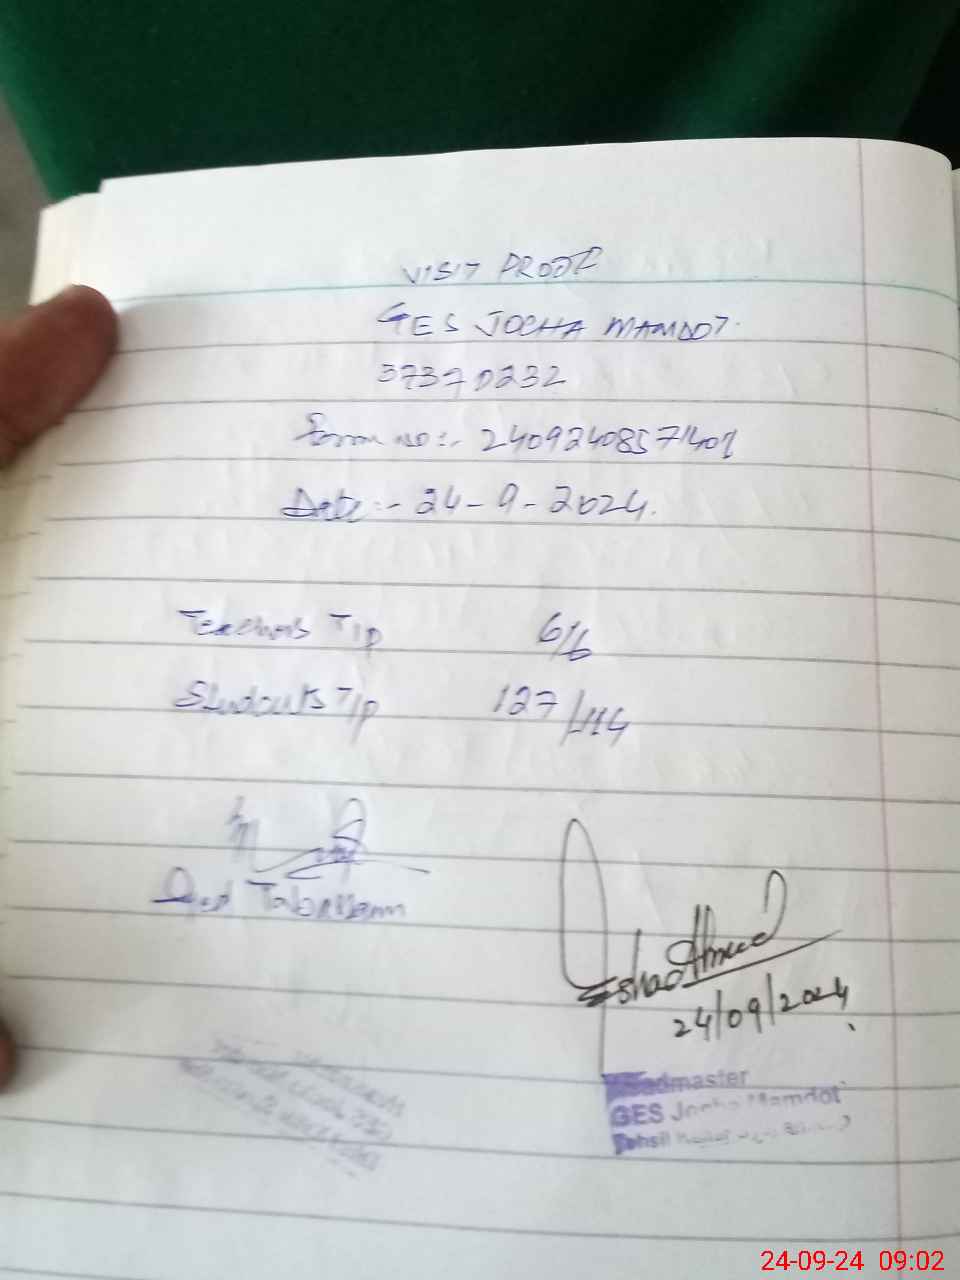 VISIT PROOF
GES JOCHA MAMDOT.
37370232
Form no:- 2409240857401
Date:- 24-9-2024.
Teachers T/P 6/6
Students T/P 127/144
Tabassam
Eshaq Ahmed
24/09/2024
Headmaster
GES Jocha Mamdot
Tehsil
24-09-24 09:02